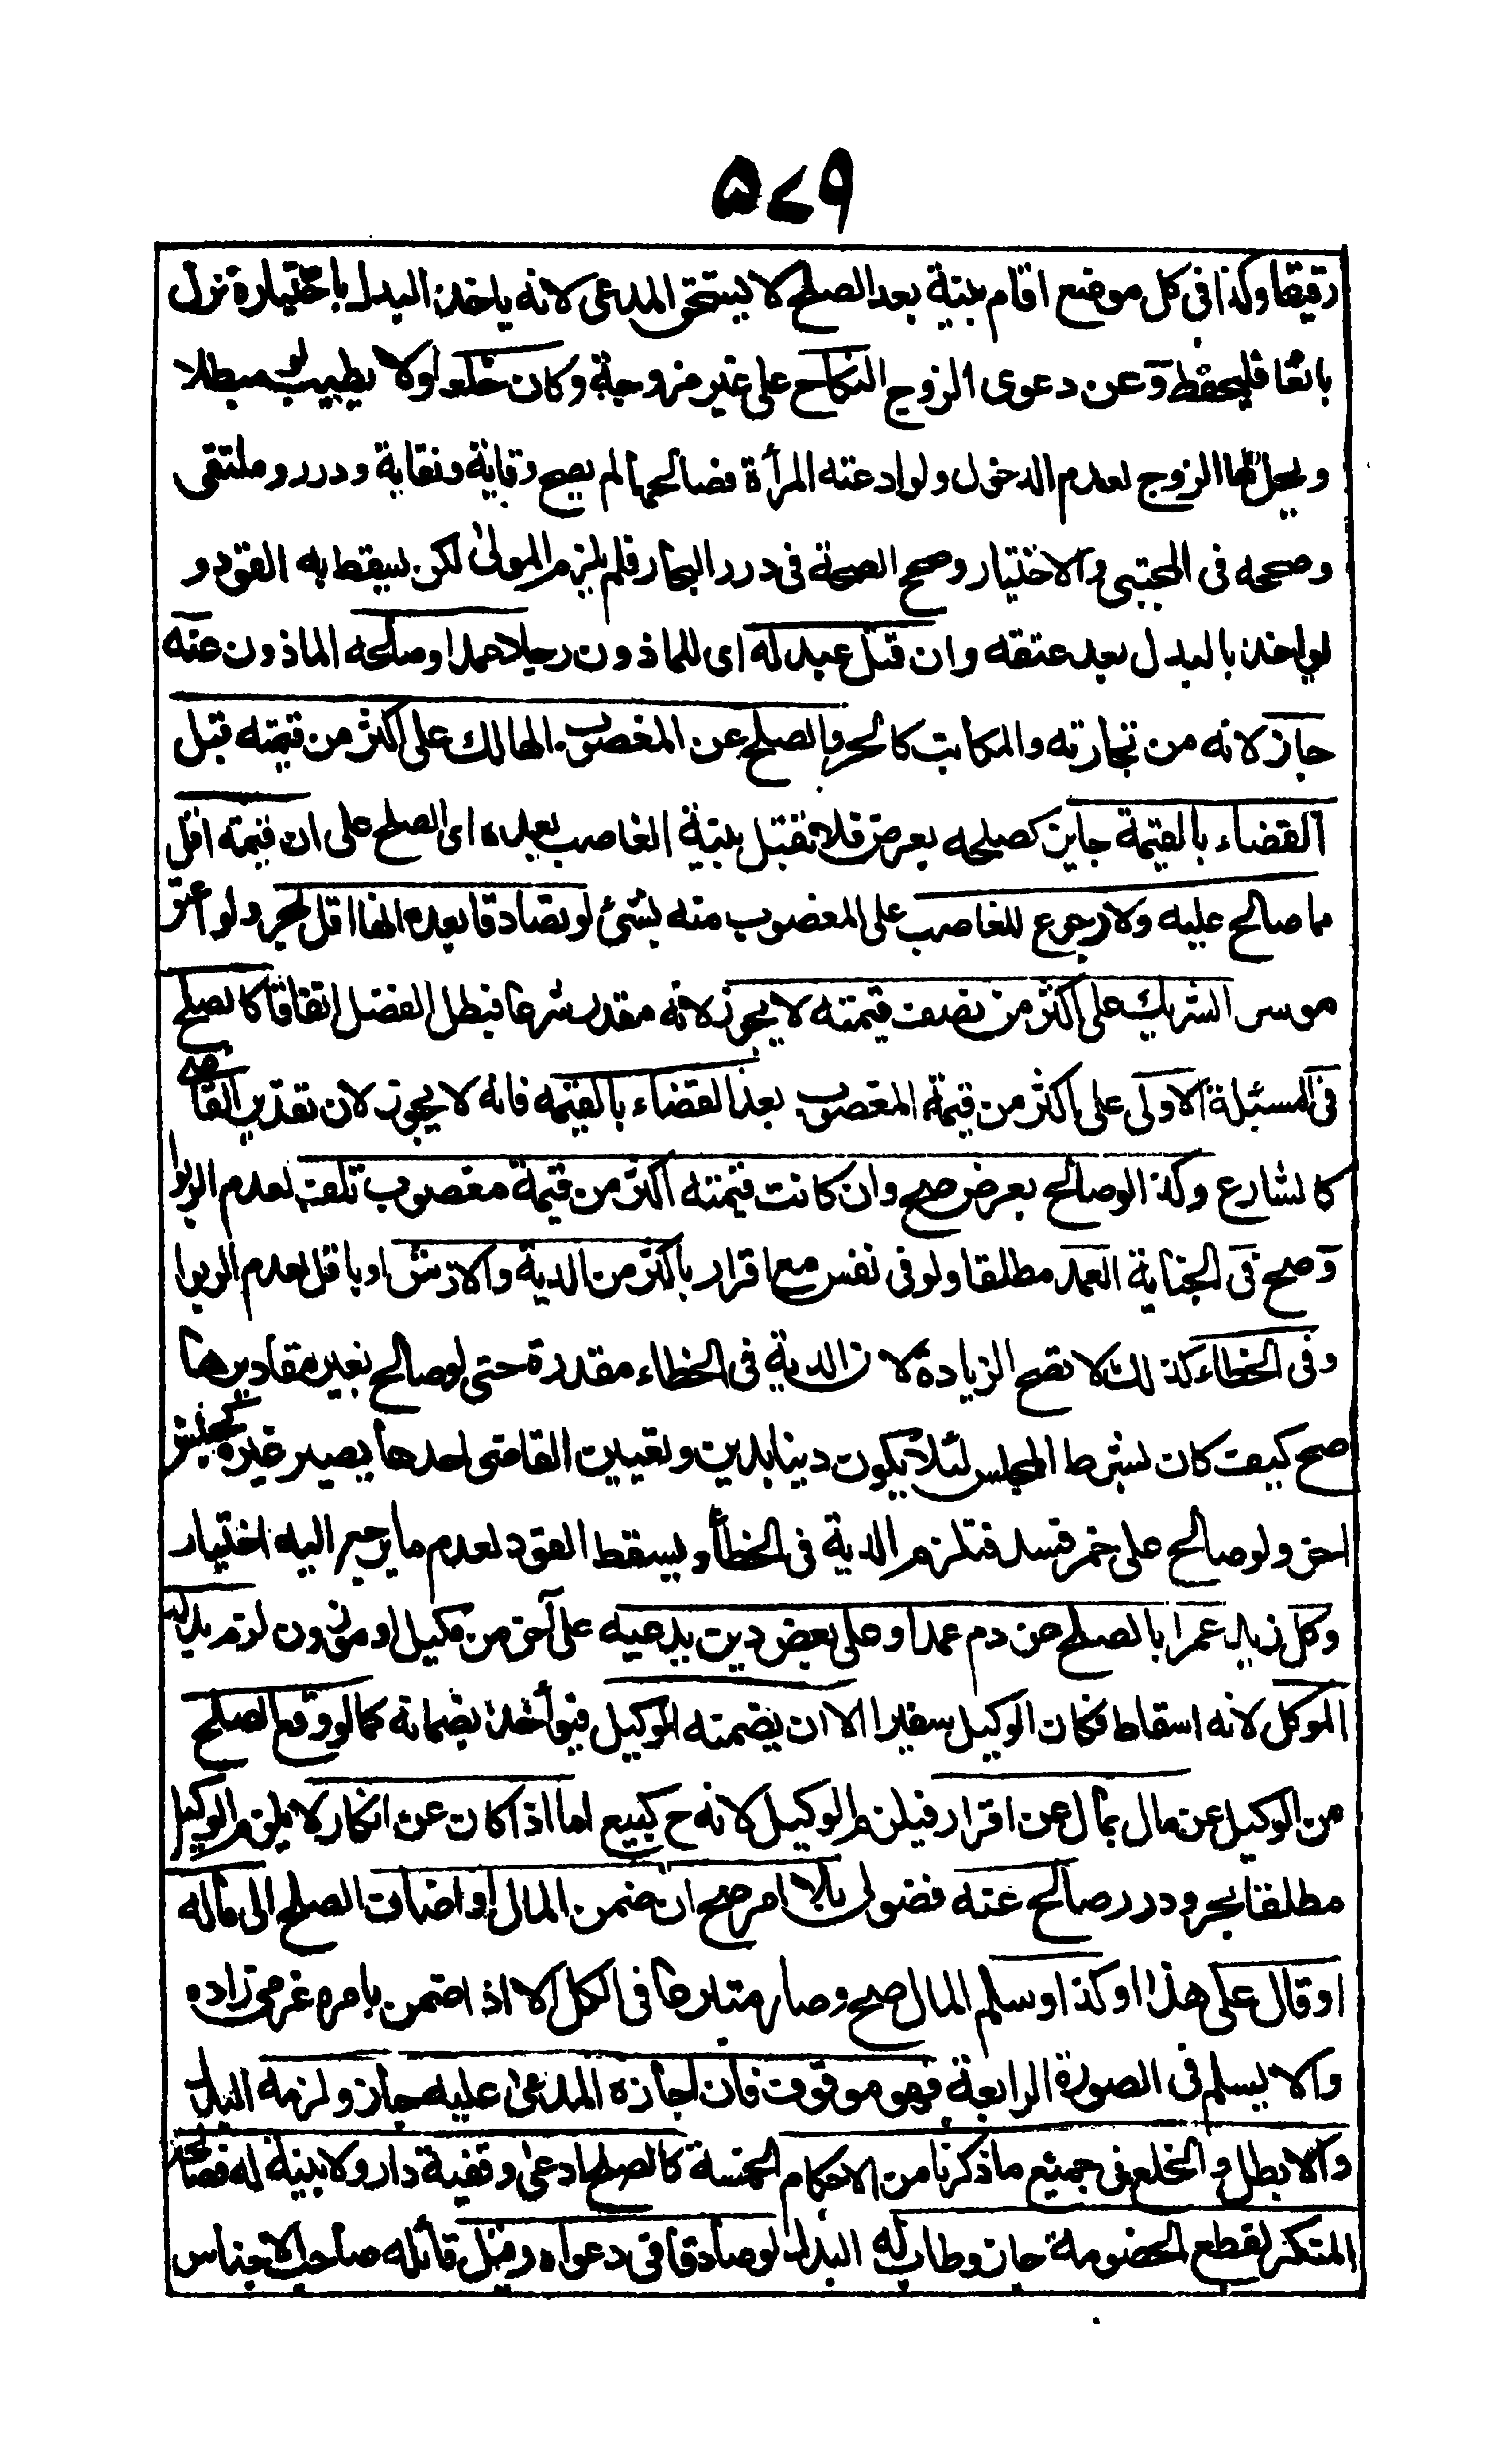 ۵۷۹
رقيقا وكذا فى كل موضع اقام بينة بعد الصلح لا يستحق المدعى لانه ياخذ البدل باختياره نزل
بائعا فليحفظ وعن دعوى الزوج النكاح على غير مزوجة وكان خلعا ولا يطيب لو مبطلا
ويحل لها الزوج لعدم الدخول ولو ادعته المرأة فصالحها لم يصح وقاية ونقاية ودرر وملتقى
وصححه فى المجتبى والاختيار وصحح الصحة فى درر البحار فلم يلزم المولى لكن يسقط به القود و
يواخذ بالبدل بعد عتقه وان قتل عبد له اى للماذون رجلا عمدا وصالحه الماذون عنه
جاز لانه من تجارته والمكاتب كالحر والصلح عن المغصوب الهالك على اكثر من قيمته قبل
القضاء بالقيمة جايز كصلحه بعرض فلا تقبل بينة الغاصب بعده اى الصلح على ان قيمته اقل
مما صالح عليه ولا رجوع للغاصب على المغصوب منه بشئ لو تصادقا بعده انها اقل بحر ولو اعتق
موسر الشريك على اكثر من نصف قيمته لا يجوز لانه مقدر شرعا فبطل الفضل اتفاقا كالصلح
فى المسئلة الاولى على اكثر من قيمة المغصوب بعد القضاء بالقيمه فانه لا يجوز لان تقدير القاضى
كالشارع وكذا لو صالح بعرض صح وان كانت قيمته اكثر من قيمة مغصوب تلف لعدم الربوا
وصح فى الجناية العمد مطلقا ولو فى نفس مع اقرار باكثر من الدية والارش او باقل لعدم الربوا
وفى الخطاء كذلك لا تصح الزيادة لان الدية فى الخطاء مقدرة حتى لو صالح بغير مقاديرها
صح كيف كان بشرط المجلس لئلا يكون دينا بدين وتعيين القاضى احدها يصير غيره كجنس
اخر ولو صالح على خمر فسد فتلزم الدية فى الخطأ ويسقط القود لعدم ما يرجع اليه اختيار
وكل زيد عمرا بالصلح عن دم عمد او على بعض دين يدعيه على آخر من مكيل او موزون لزم بدله
الموكل لانه اسقاط فكان الوكيل سفيرا الا ان يضمنه الوكيل فيؤاخذ بضمانه كما لو وقع الصلح
من الوكيل عن مال بمال عن اقرار فيلزم الوكيل لانه ح كبيع اما اذا كان عن انكار لا يلزم الوكيل
مطلقا بحر ودرر صالح عنه فضولى بلا امر صح ان ضمن المال او اضاف الصلح الى ماله
او قال على هذا او كذا وسلم المال صح وصار متبرعا فى الكل الا اذا ضمن بامره عزمى زاده
والا يسلم فى الصورة الرابعة فهو موقوف فان اجازه المدعى عليه جاز ولزمه البدل
والا بطل والخلع فى جميع ما ذكرنا من الاحكام الخمسة كالصلح ادعى وقفية دار ولا بينة له فصالحه
المنكر لقطع الخصومة جاز وطاب له البدل لو صادقا فى دعواه وقيل قائله صاحب الاجناس